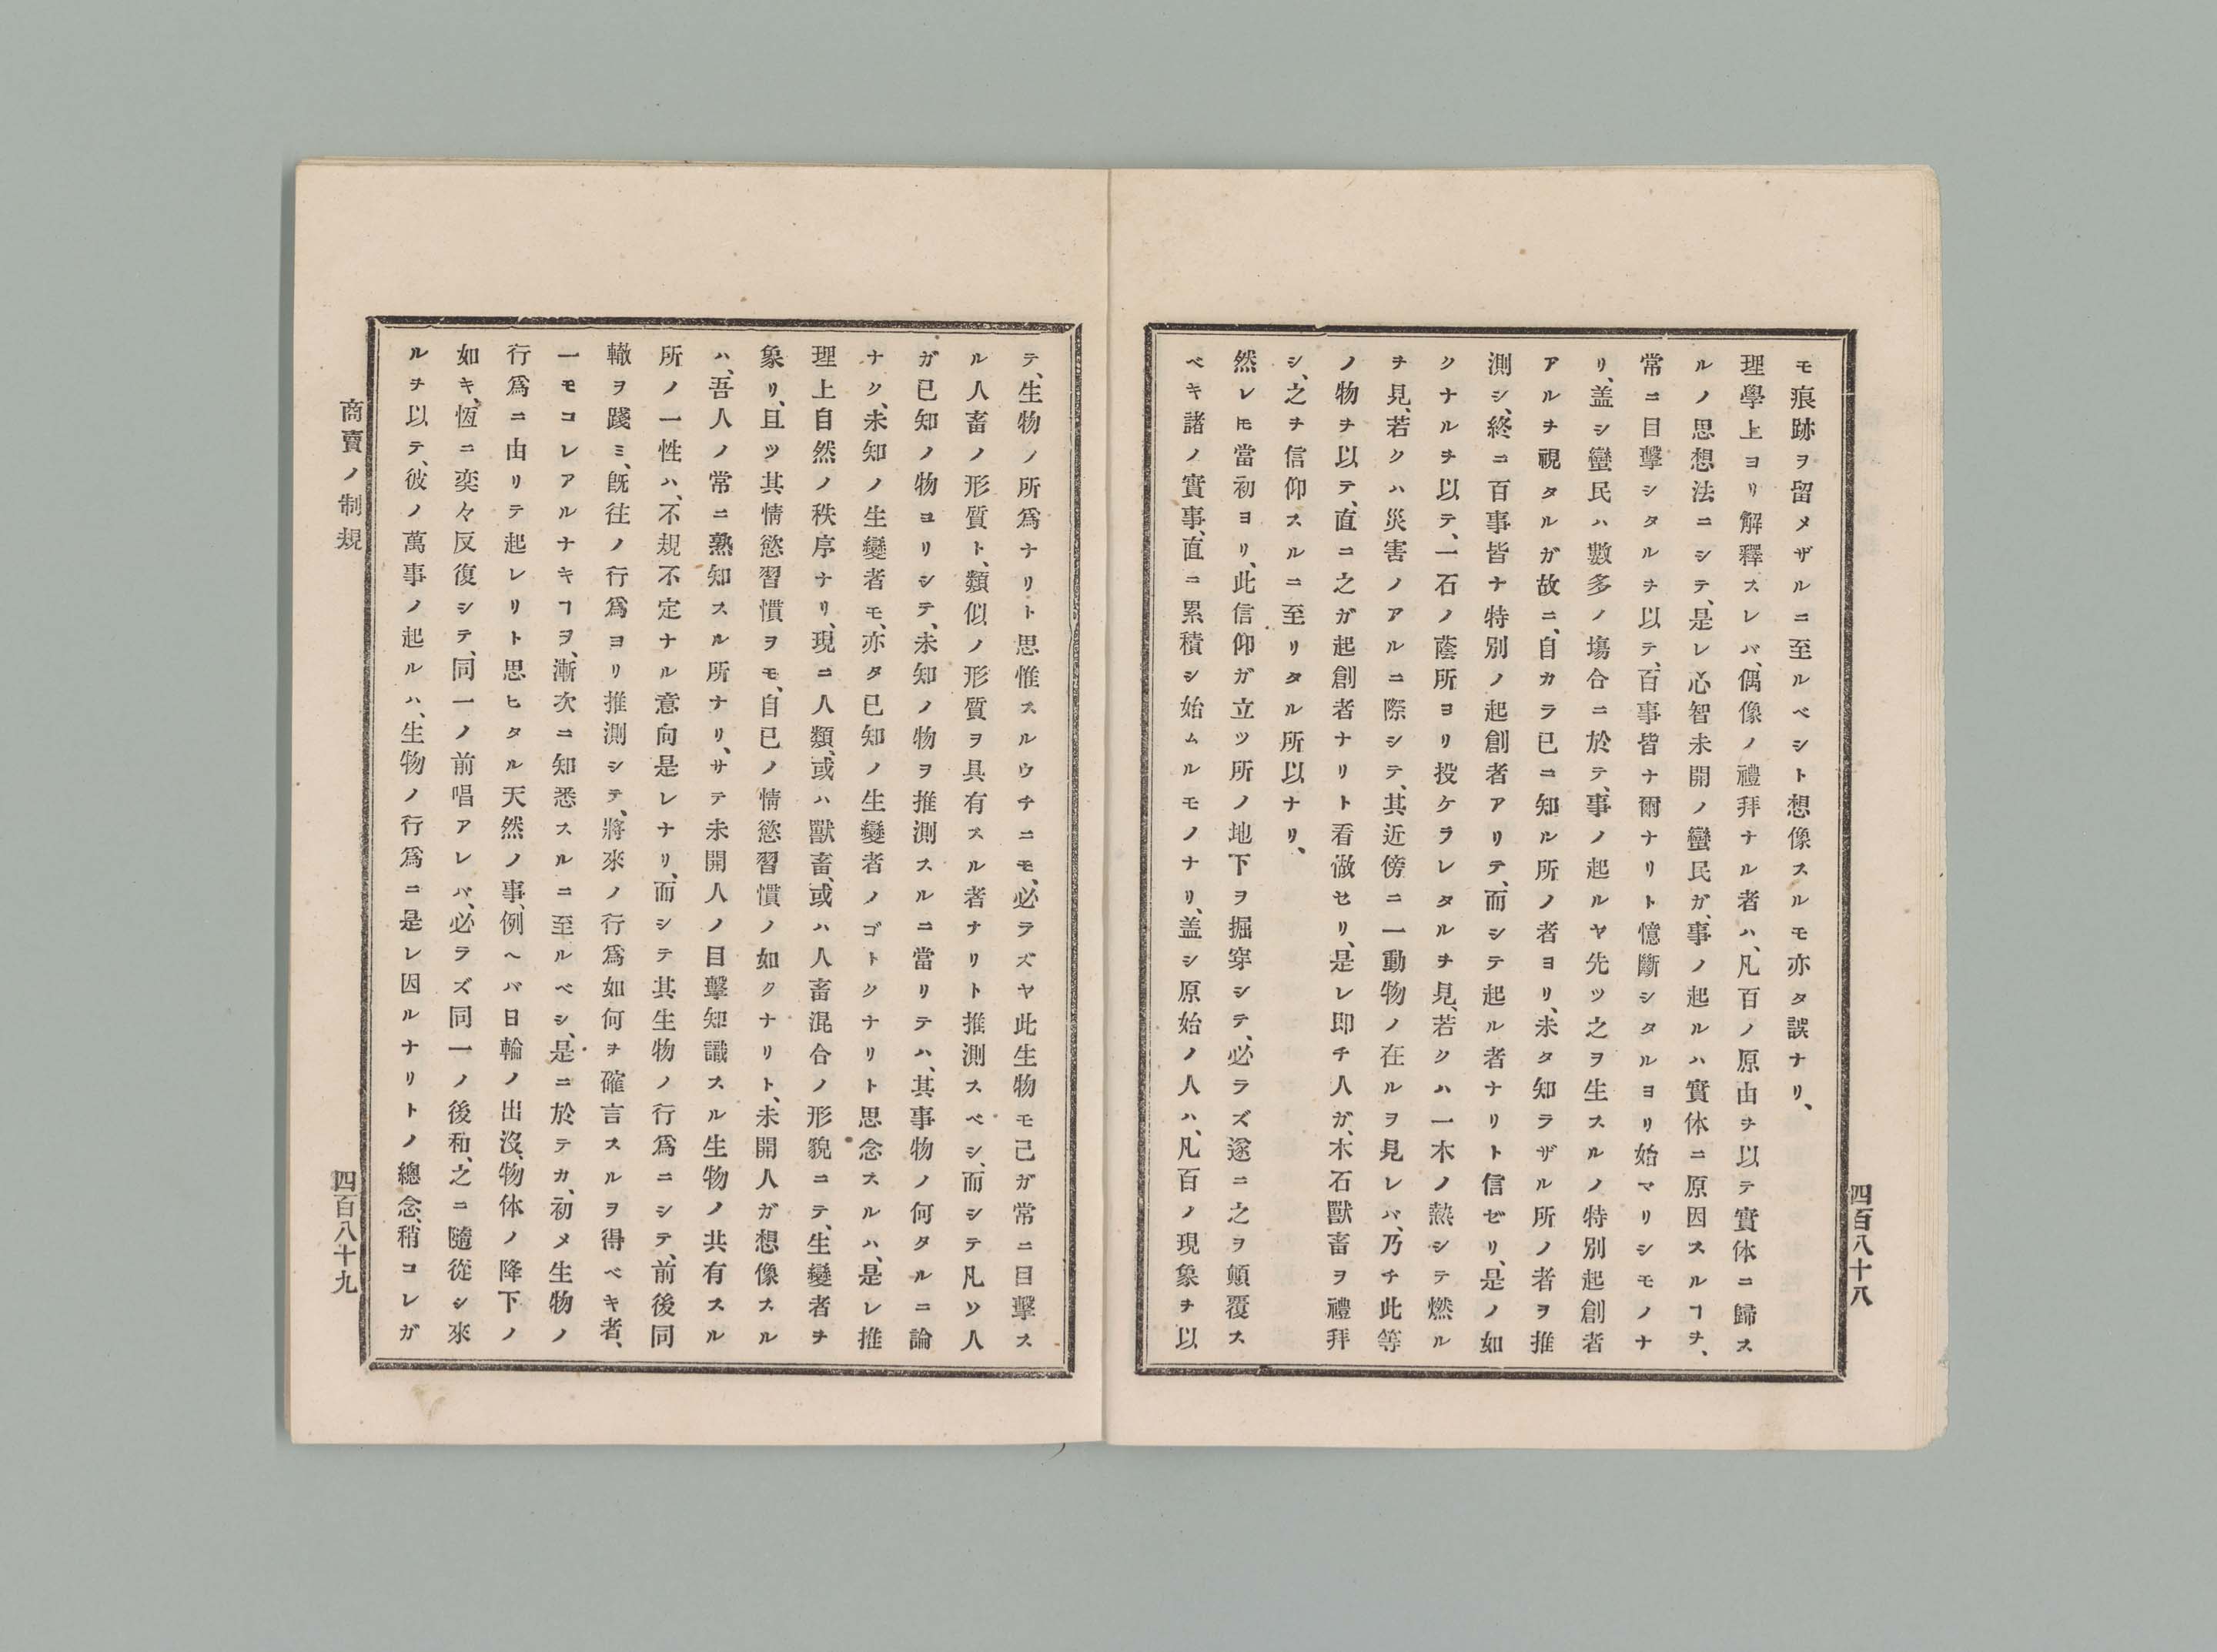 モ痕跡ヲ留メザルニ至ルベシト想像スルモ亦タ誤ナリ、
理學上ヨリ解釋スレバ、偶像ノ禮拜ナル者ハ、凡百ノ原由ヲ以テ實体ニ歸ス
ルノ思想法ニシテ、是レ心智未開ノ蠻民ガ、事ノ起ルハ實体ニ原因スルヿヲ、
常ニ目擊シタルヲ以テ、百事皆ナ爾ナリト憶斷シタルヨリ始マリシモノナ
リ、盖シ蠻民ハ數多ノ塲合ニ於テ、事ノ起ルヤ先ツ之ヲ生スルノ特別起創者
アルヲ視タルガ故ニ、自カラ已ニ知ル所ノ者ヨリ、未タ知ラザル所ノ者ヲ推
測シ、終ニ百事皆ナ特別ノ起創者アリテ、而シテ起ル者ナリト信ゼリ、是ノ如
クナルヲ以テ、一石ノ蔭所ヨリ投ケラレタルヲ見、若クハ一木ノ熱シテ燃ル
ヲ見、若クハ災害ノアルニ際シテ、其近傍ニ一動物ノ在ルヲ見レバ、乃チ此等
ノ物ヲ以テ、直ニ之ガ起創者ナリト看做セリ、是レ即チ人ガ、木石獸畜ヲ禮拜
シ、之ヲ信仰スルニ至リタル所以ナリ、
然レ𪜈當初ヨリ、此信仰ガ立ツ所ノ地下ヲ掘穿シテ、必ラズ遂ニ之ヲ顚覆ス
ベキ諸ノ實事、直ニ累積シ始ムルモノナリ、盖シ原始ノ人ハ、凡百ノ現象ヲ以
四百八十八
テ、生物ノ所爲ナリト思惟スルウチニモ、必ラズヤ此生物モ己ガ常ニ目擊ス
ル人畜ノ形質ト、類似ノ形質ヲ具有スル者ナリト推測スベシ、而シテ凡ソ人
ガ已知ノ物ヨリシテ、未知ノ物ヲ推測スルニ當リテハ、其事物ノ何タルニ論
ナク、未知ノ生變者モ、亦タ已知ノ生變者ノゴトクナリト思念スルハ、是レ推
理上自然ノ秩序ナリ、現ニ人類、或ハ獸畜、或ハ人畜混合ノ形貌ニテ、生變者ヲ
象リ、且ツ其情慾習慣ヲモ、自已ノ情慾習慣ノ如クナリト、未開人ガ想像スル
ハ、吾人ノ常ニ熟知スル所ナリ、サテ未開人ノ目擊知識スル生物ノ共有スル
所ノ一性ハ、不規不定ナル意向是レナリ、而シテ其生物ノ行爲ニシテ、前後同
轍ヲ踐ミ、旣往ノ行爲ヨリ推測シテ、將來ノ行爲如何ヲ確言スルヲ得ベキ者、
一モコレアルナキヿヲ、漸次ニ知悉スルニ至ルベシ、是ニ於テカ、初メ生物ノ
行爲ニ由リテ起レリト思ヒタル天然ノ事、例ヘバ日輪ノ出沒、物体ノ降下ノ
如キ、恆ニ奕々反復シテ、同一ノ前唱アレバ、必ラズ同一ノ後和、之ニ隨從シ來
ルヲ以テ、彼ノ萬事ノ起ルハ、生物ノ行爲ニ是レ因ルナリトノ總念、稍コレガ
商賣ノ制規
四百八十九